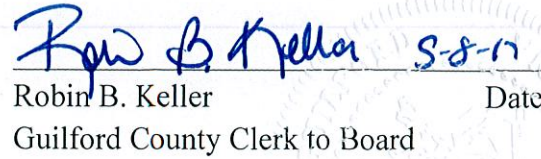 Robin B. Keller 5-8-17
Robin B. Keller Date
Guilford County Clerk to Board